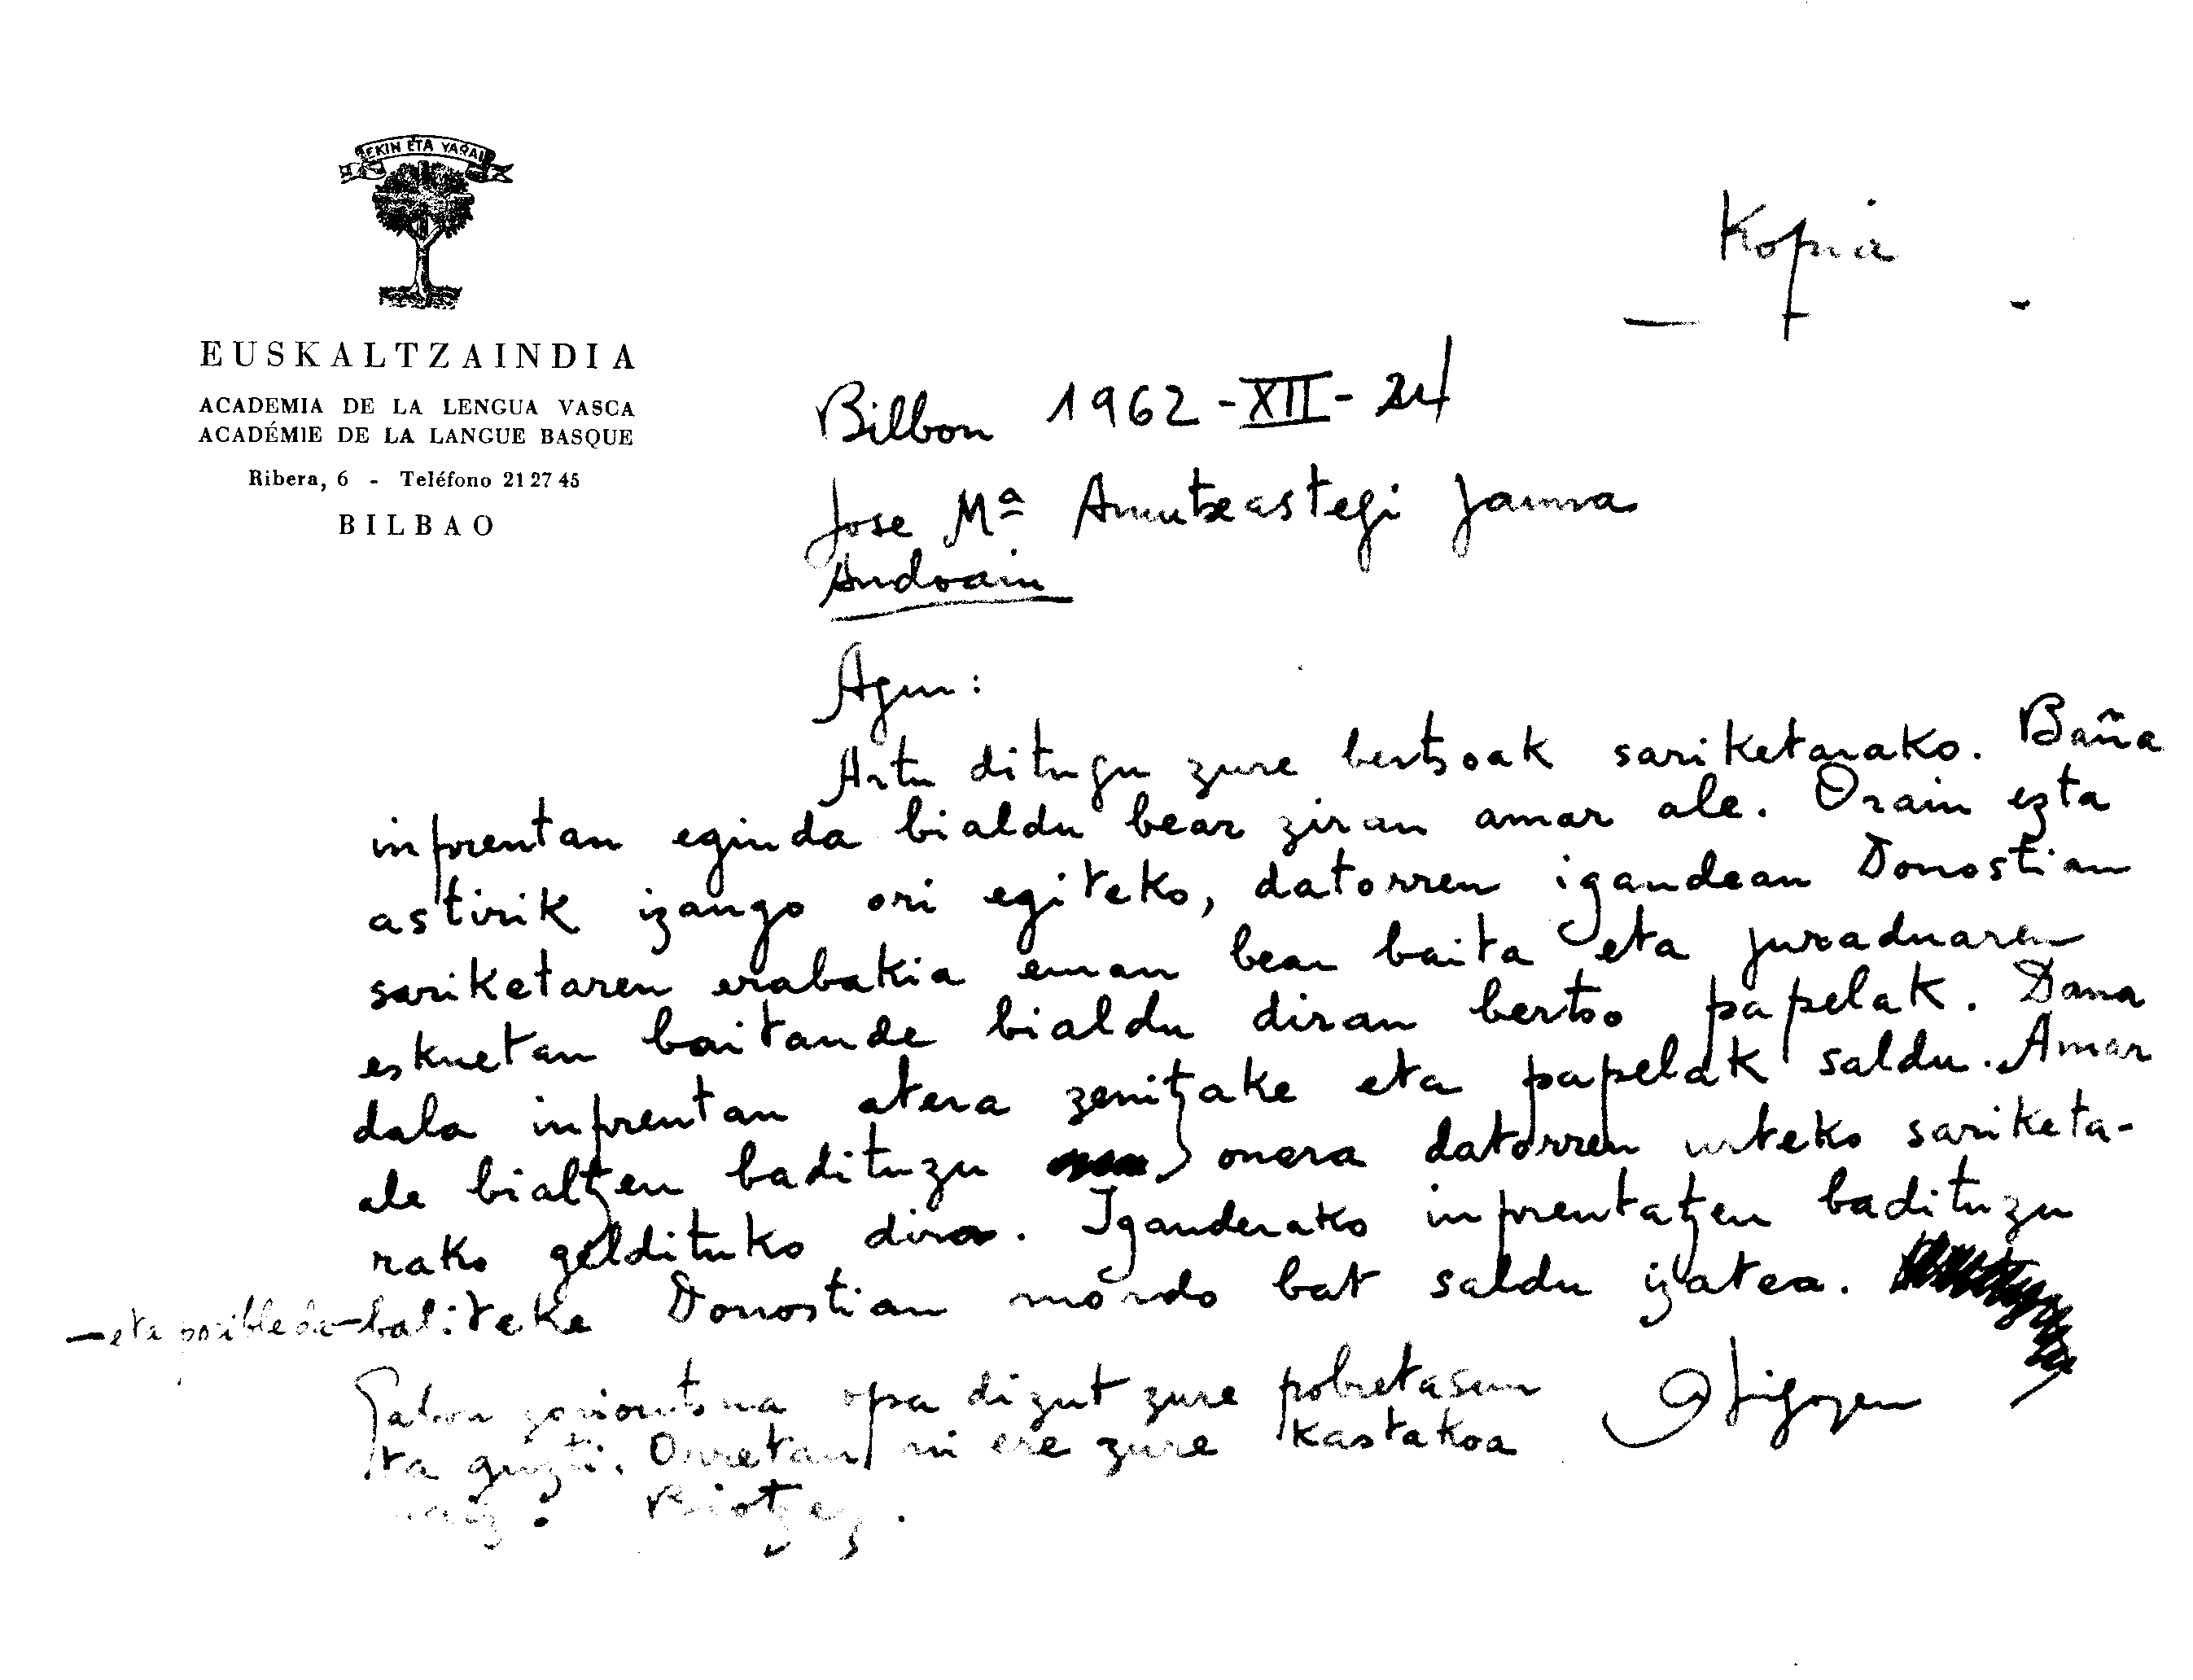 EKIN ETA YARAI
Kopia
EUSKALTZAINDIA
ACADEMIA DE LA LENGUA VASCA
ACADÉMIE DE LA LANGUE BASQUE
Ribera, 6 - Teléfono 21 27 45
BILBAO
Bilbon 1962-XII-24
Jose Mª Amutxastegi Jauna
Andoain
Agur:
Artu ditugu zure bertsoak sariketarako. Baña
inprentan eginda bialdu bear ziran amar ale. Orain ezta
astirik izango ori egiteko, datorren igandean Donostian
sariketaren erabakia eman bear baita eta juraduaren
eskuetan baitaude bialdu diran bertso papelak. Dana
dala inprentan atera zenitzake eta papelak saldu. Amar
ale bialtzen badituzu onera datorren urteko sariketa-
rako geldituko dira. Iganderako inprentatzen badituzu
—eta posible da— baliteke Donostian mordo bat saldu izatea.
Gabon zoriontsua opa dizut zure pobretasun
ta guzti. Orretan ni ere zure kastakoa
naiz. Biotzez.